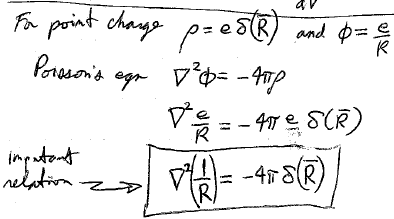 dV
For point charge ρ = e δ(R̄) and φ = e/R
Poisson's eqn ∇²φ = -4πρ
∇² e/R = -4π e δ(R̄)
important
relation → ∇²(1/R) = -4π δ(R̄)